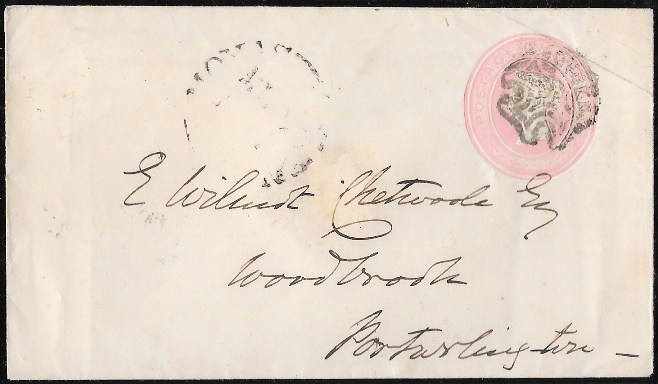 POSTAGE
E Wilmot Chetwode Esq
Woodbrook
Portarlington